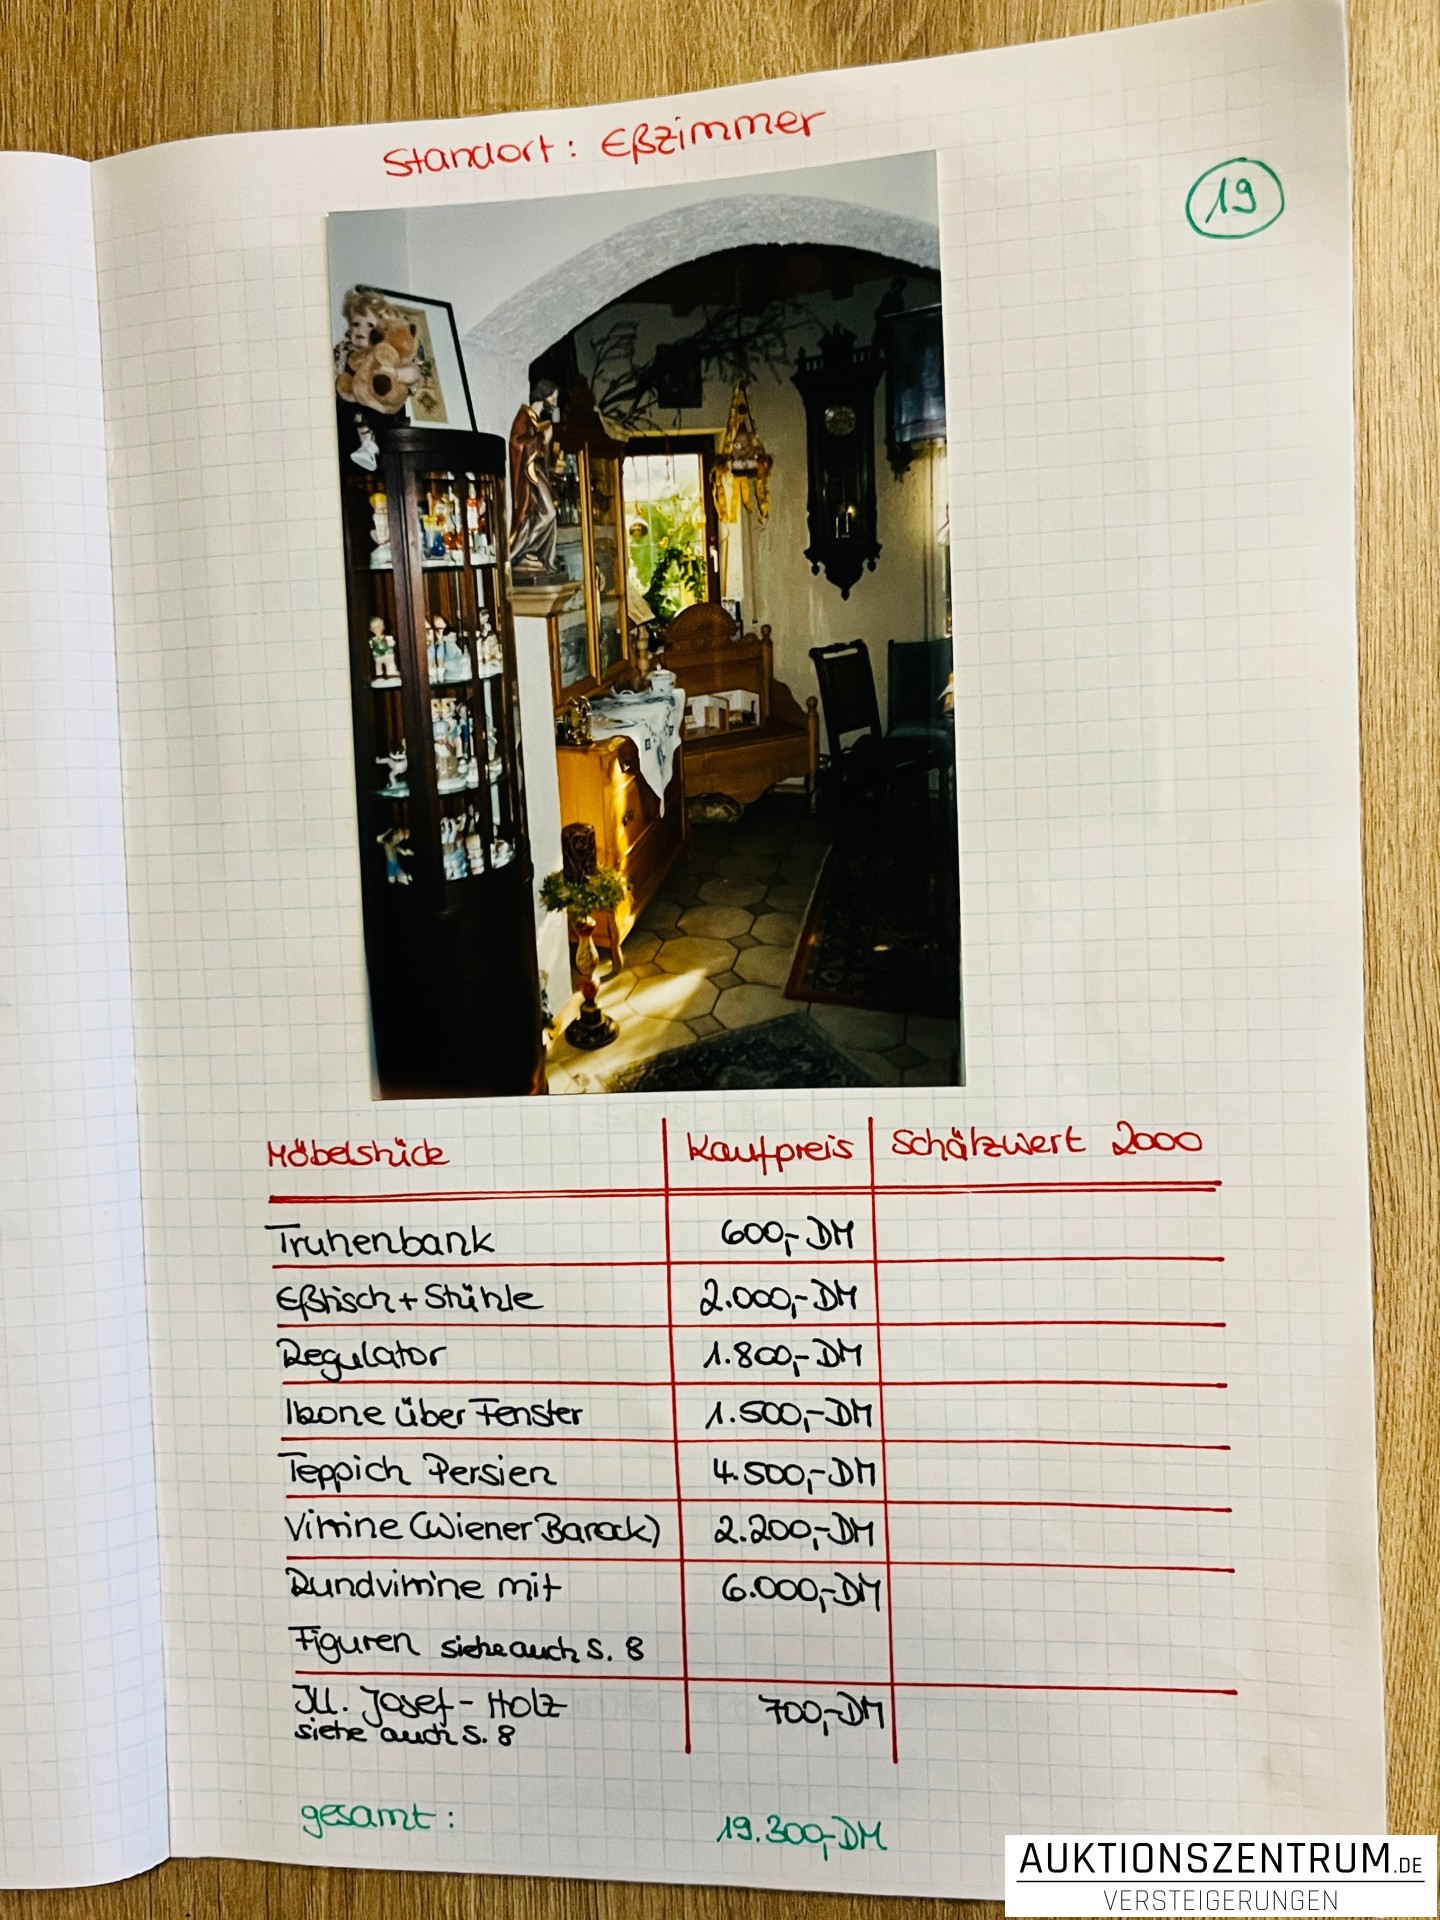 Standort: Eßzimmer
19
Möbelstück Kaufpreis Schätzwert 2000
Truhenbank 600,- DM
Eßtisch + Stühle 2.000,- DM
Regulator 1.800,- DM
Ikone über Fenster 1.500,- DM
Teppich Persien 4.500,- DM
Vitrine (Wiener Barock) 2.200,- DM
Rundvitrine mit 6.000,- DM
Figuren siehe auch S. 8
Hl. Josef - Holz 700,- DM
siehe auch S. 8
gesamt: 19.300,- DM
AUKTIONSZENTRUM.DE
VERSTEIGERUNGEN